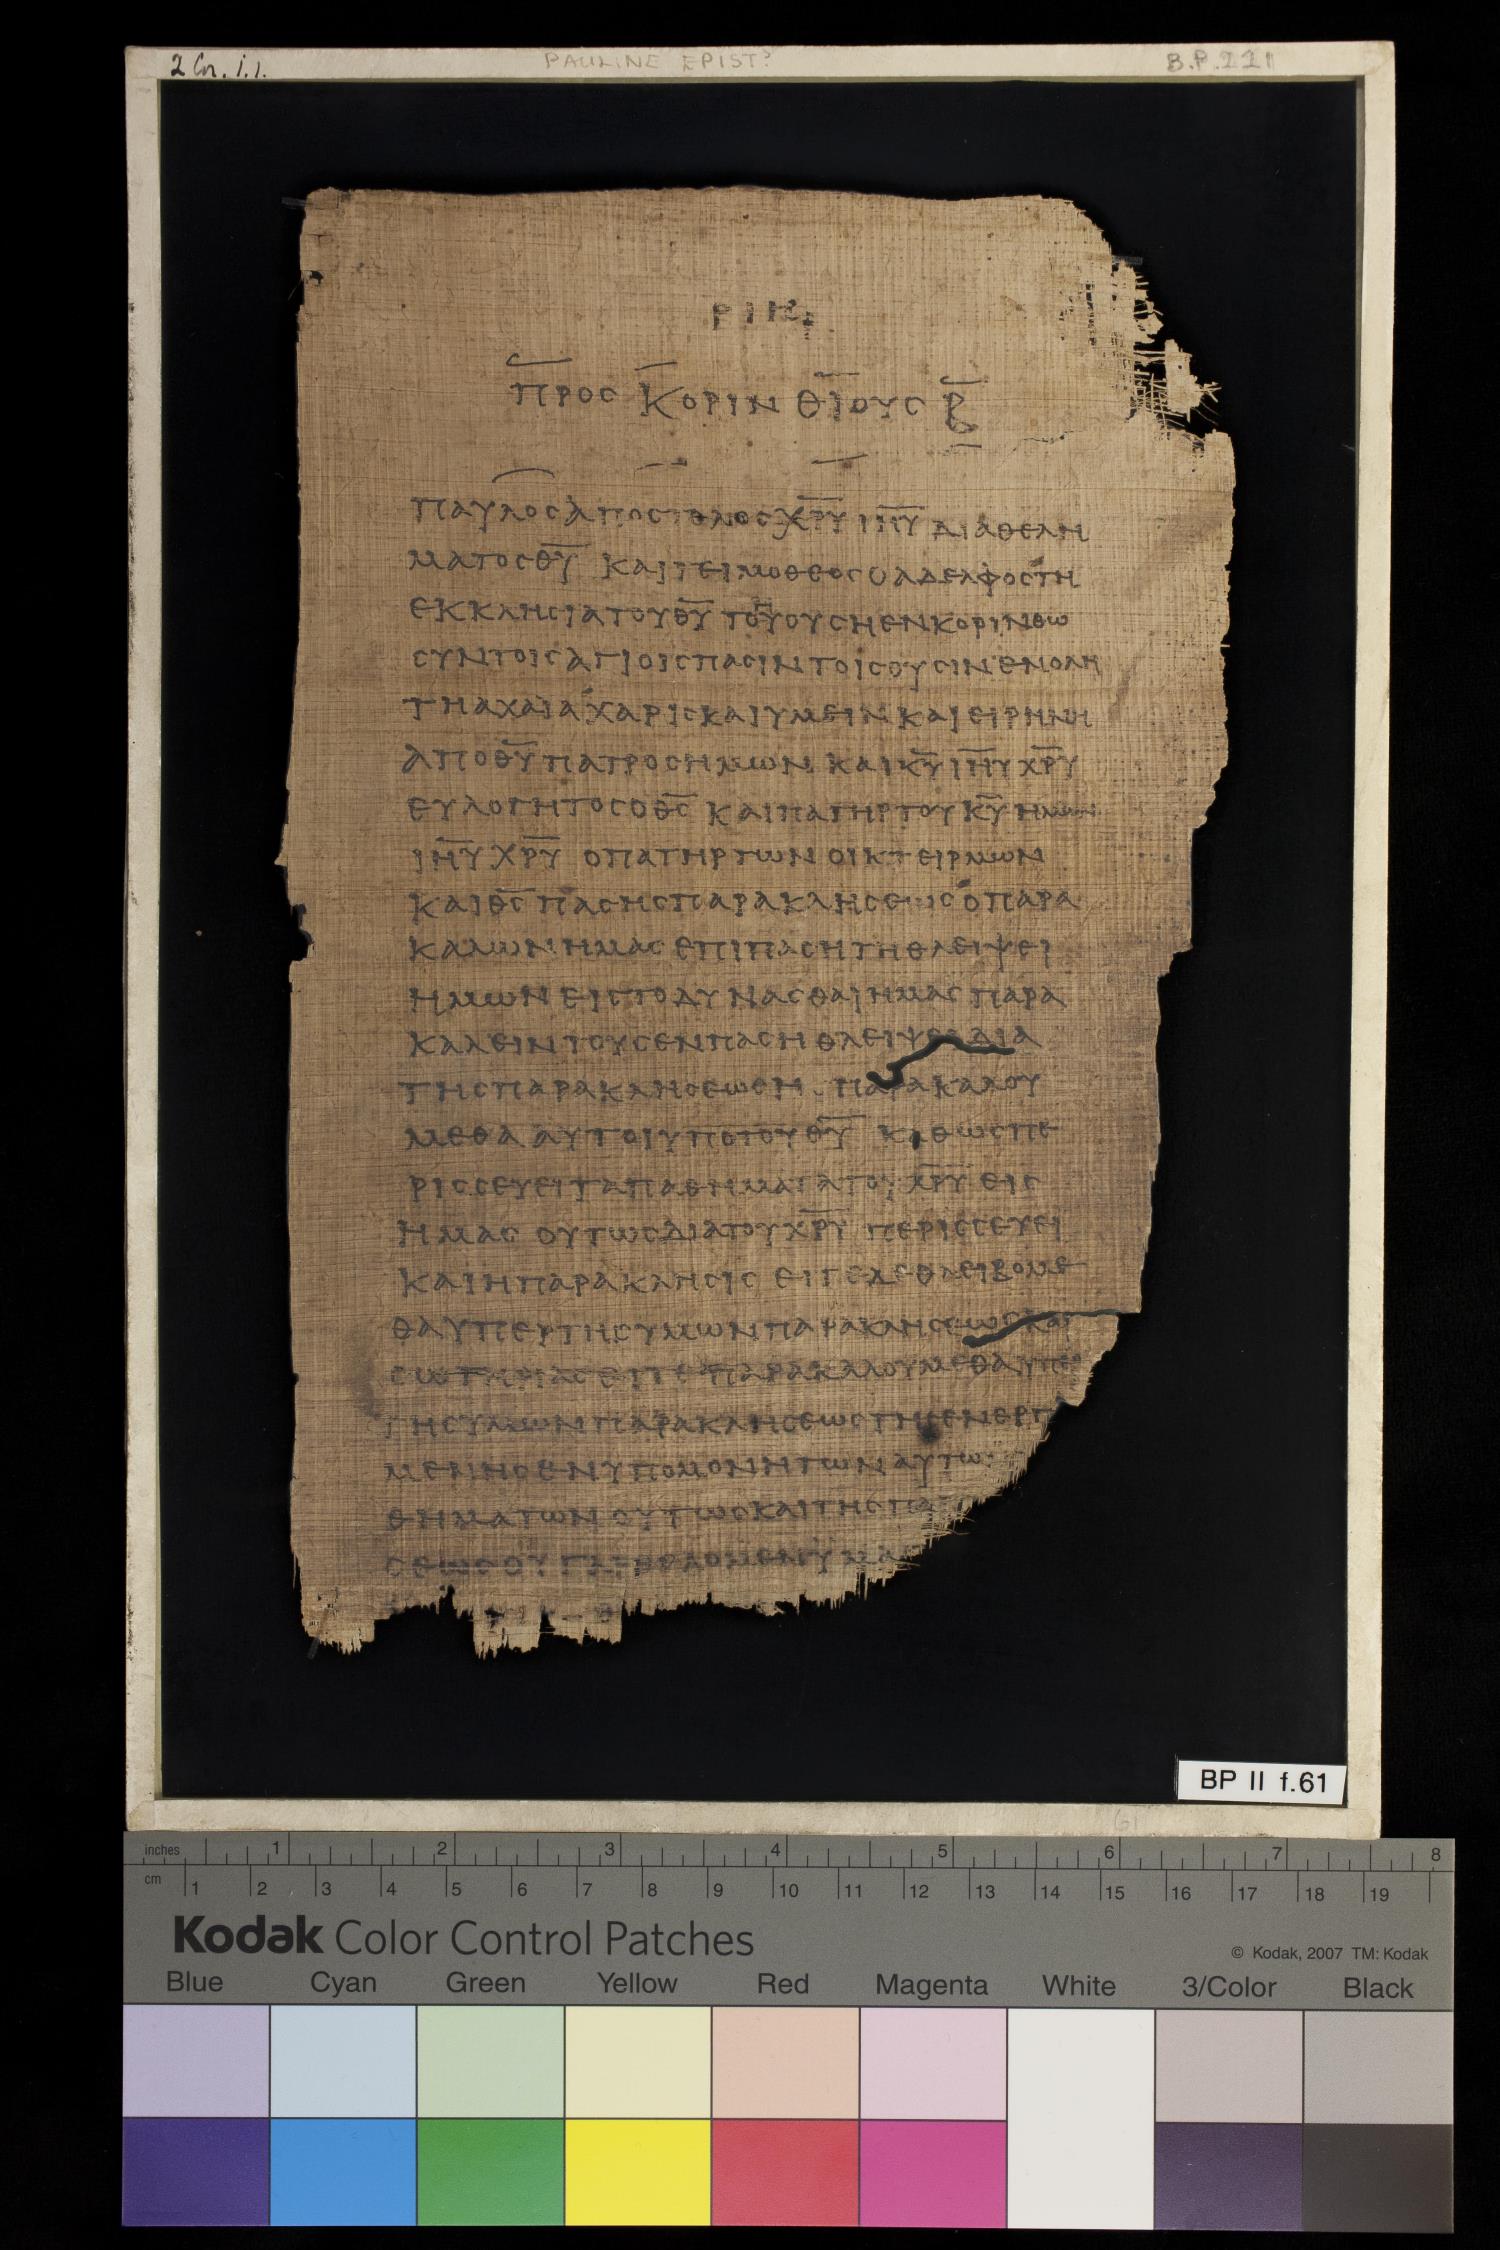 2 Cor. i. 1.
PAULINE EPIST⁵
B.P.II
ΠΡΟС ΚΟΡΙΝΘΙΟΥС Β̅
ΠΑΥΛΟС ΑΠΟСΤΟΛΟС Χ̅Ρ̅Υ̅ Ι̅Η̅Υ̅ ΔΙΑ ΘΕΛΗ
ΜΑΤΟС Θ̅Υ̅ ΚΑΙ ΤΕΙΜΟΘΕΟС Ο ΑΔΕΛΦΟС ΤΗ
ΕΚΚΛΗСΙΑ ΤΟΥ Θ̅Υ̅ ΟΥСΗ ΕΝ ΚΟΡΙΝΘω
СΥΝ ΤΟΙС ΑΓΙΟΙС ΠΑСΙΝ ΤΟΙС ΟΥСΙΝ ΕΝ ΟΛΗ
ΤΗ ΑΧΑΪΑ ΧΑΡΙС ΚΑΙ ΥΜΕΙΝ ΚΑΙ ΕΙΡΗΝΗ
ΑΠΟ Θ̅Υ̅ ΠΑΤΡΟС ΗΜωΝ ΚΑΙ Κ̅Υ̅ Ι̅Η̅Υ̅ Χ̅Ρ̅Υ̅
ΕΥΛΟΓΗΤΟС Ο Θ̅С̅ ΚΑΙ ΠΑΤΗΡ ΤΟΥ Κ̅Υ̅ ΗΜωΝ
Ι̅Η̅Υ̅ Χ̅Ρ̅Υ̅ Ο ΠΑΤΗΡ ΤωΝ ΟΙΚΤΕΙΡΜωΝ
ΚΑΙ Θ̅С̅ ΠΑСΗС ΠΑΡΑΚΛΗСΕωС Ο ΠΑΡΑ
ΚΑΛωΝ ΗΜΑС ΕΠΙ ΠΑСΗ ΤΗ ΘΛΕΙΨΕΙ
ΗΜωΝ ΕΙС ΤΟ ΔΥΝΑСΘΑΙ ΗΜΑС ΠΑΡΑ
ΚΑΛΕΙΝ ΤΟΥС ΕΝ ΠΑСΗ ΘΛΕΙΨΕΙ ΔΙΑ
ΤΗС ΠΑΡΑΚΛΗСΕωС Η ΠΑΡΑΚΑΛΟΥ
ΜΕΘΑ ΑΥΤΟΙ ΥΠΟ ΤΟΥ Θ̅Υ̅ ΚΑΘωС ΠΕ
ΡΙССΕΥΕΙ ΤΑ ΠΑΘΗΜΑΤΑ ΤΟΥ Χ̅Ρ̅Υ̅ ΕΙС
ΗΜΑС ΟΥΤωС ΔΙΑ ΤΟΥ Χ̅Ρ̅Υ̅ ΠΕΡΙССΕΥΕΙ
ΚΑΙ Η ΠΑΡΑΚΛΗСΙС ΕΙΤΕ ΔΕ ΘΛΕΙΒΟΜΕ
ΘΑ ΥΠΕΡ ΤΗС ΥΜωΝ ΠΑΡΑΚΛΗСΕωС ΚΑΙ
СωΤΗΡΙΑС ΕΙΤΕ ΠΑΡΑΚΑΛΟΥΜΕΘΑ ΥΠΕΡ
ΤΗС ΥΜωΝ ΠΑΡΑΚΛΗСΕωС ΤΗС ΕΝΕΡΓ
ΜΕΝΗС ΕΝ ΥΠΟΜΟΝΗ ΤωΝ ΑΥΤω
ΘΗΜΑΤωΝ ΟΥΤωС ΚΑΙ ΤΗС ΠΑ
СΕωС ΟΥ ΓΑΡ ΘΕΛΟΜΕΝ ΥΜΑ
BP II f.61
inches 1 2 3 4 5 6 7 8
cm 1 2 3 4 5 6 7 8 9 10 11 12 13 14 15 16 17 18 19
Kodak Color Control Patches
© Kodak, 2007 TM: Kodak
Blue Cyan Green Yellow Red Magenta White 3/Color Black